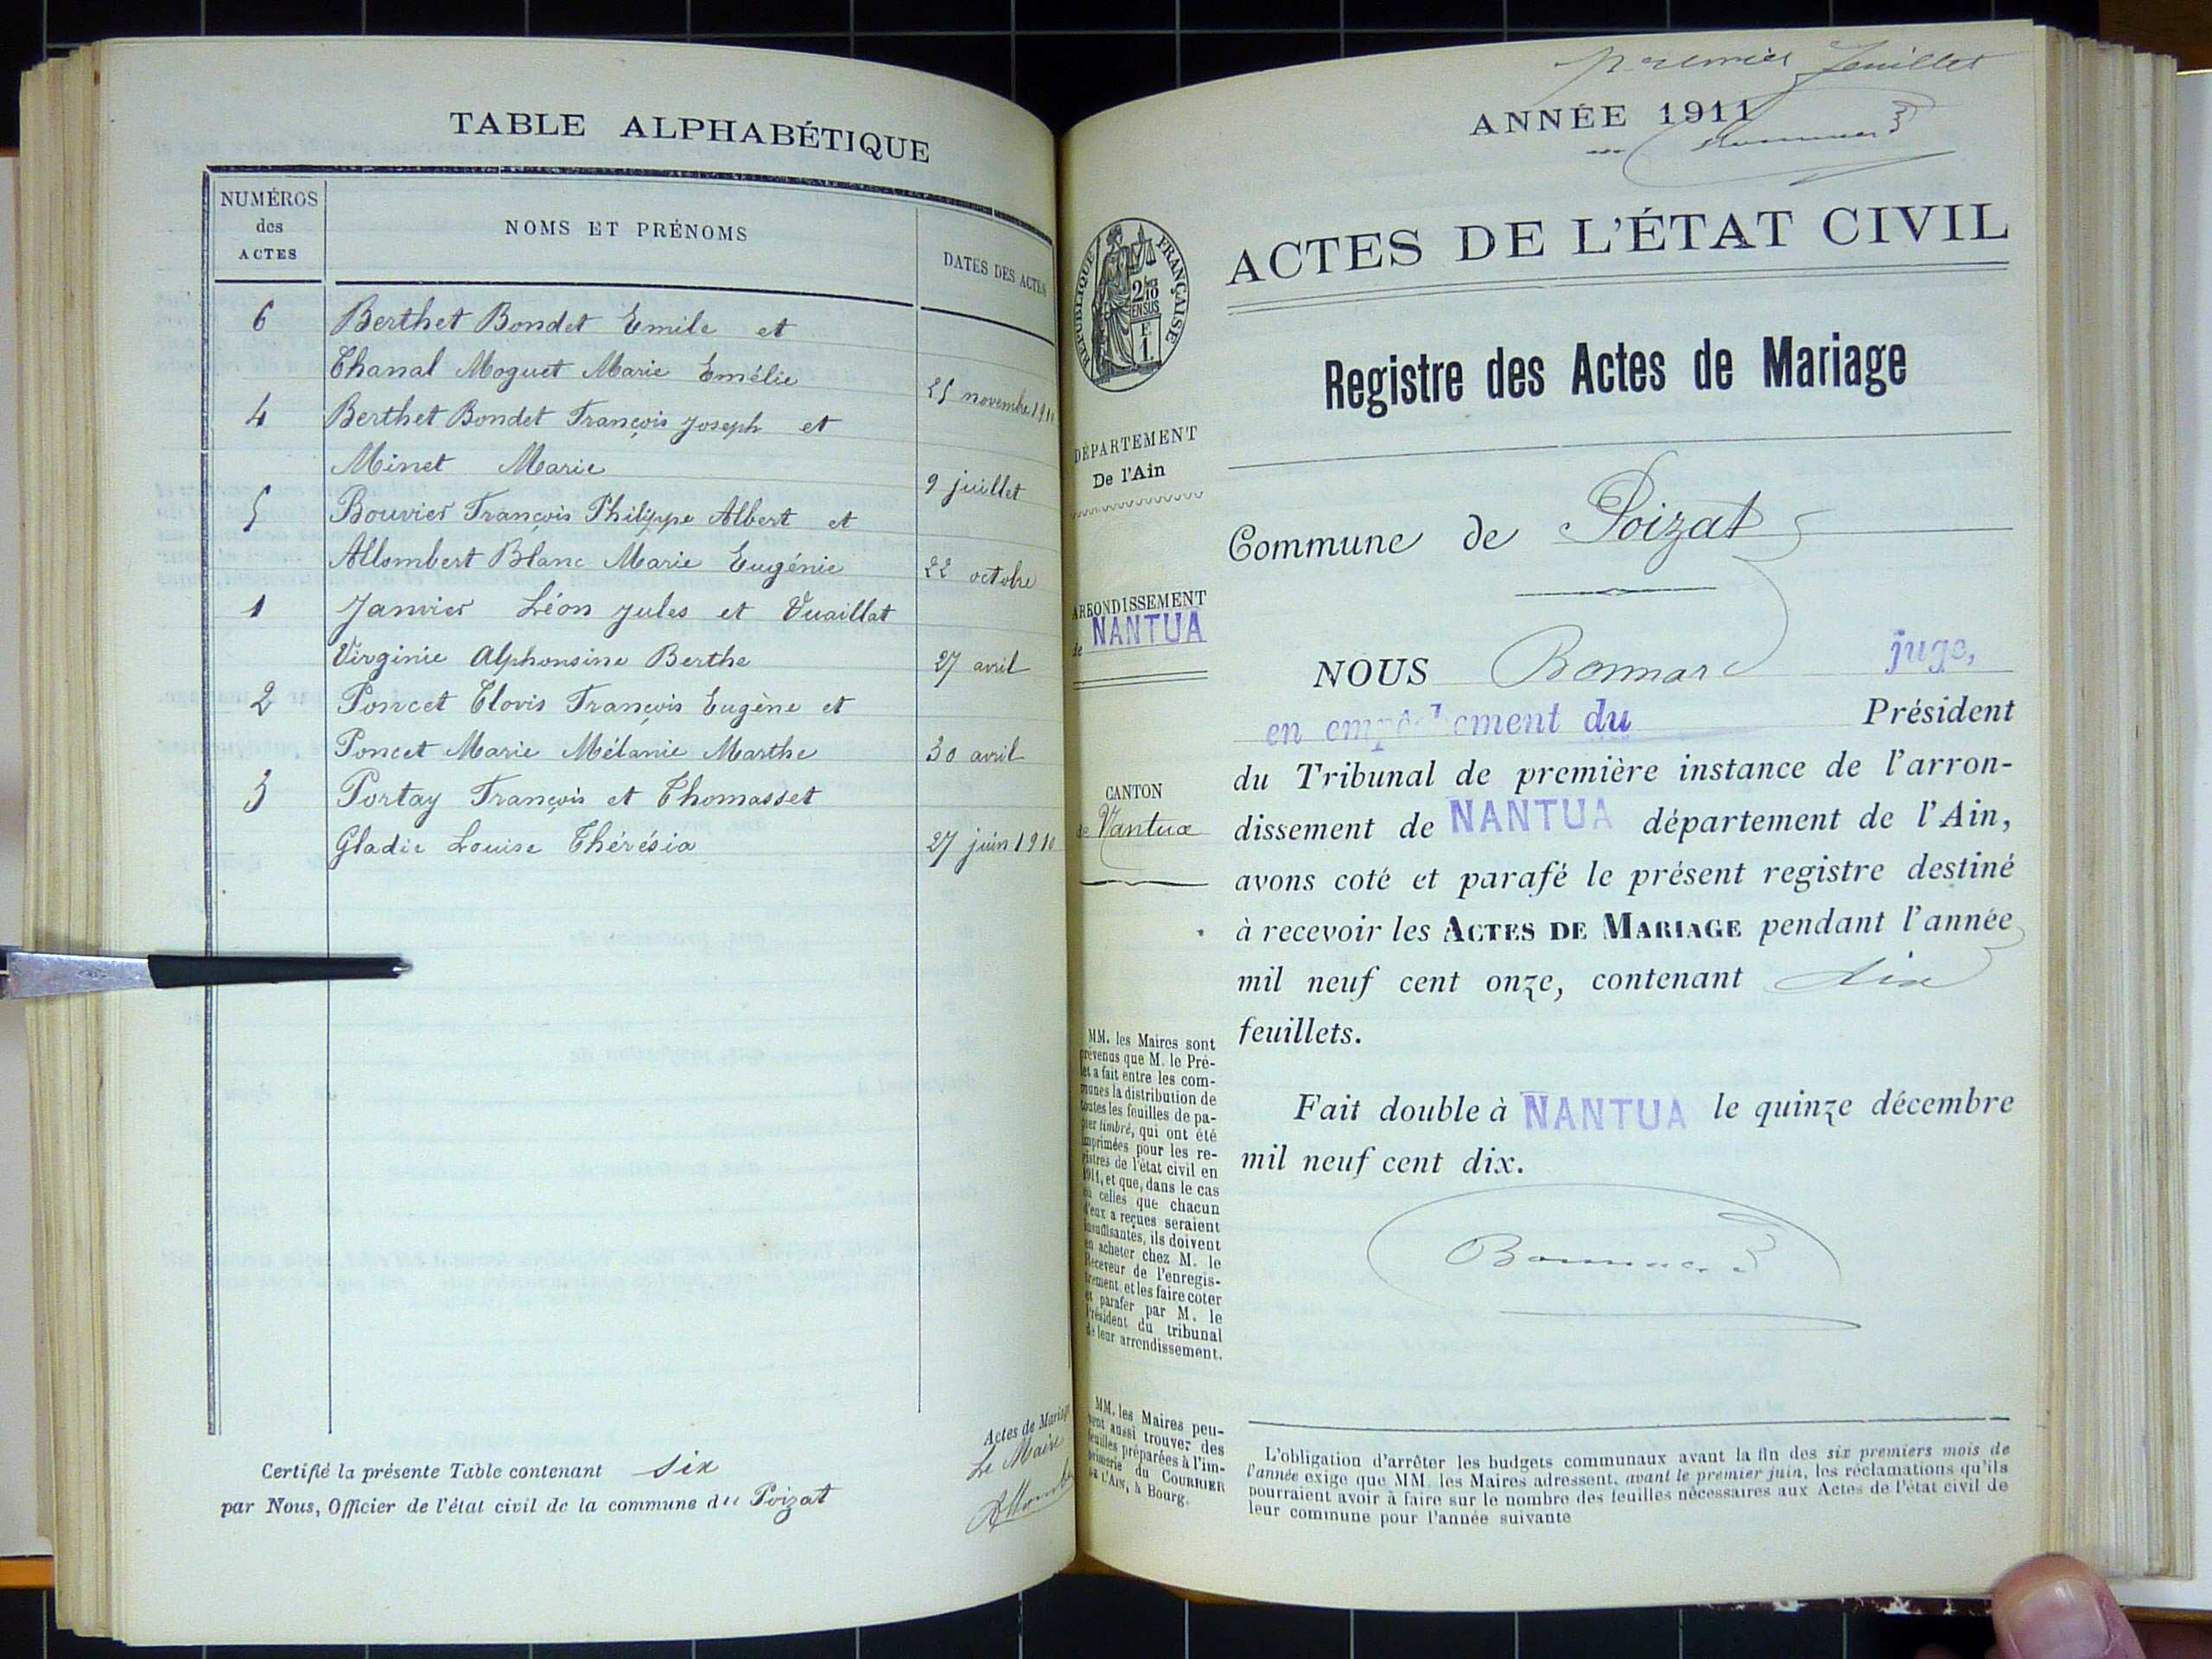 TABLE ALPHABÉTIQUE
NUMÉROS
des
ACTES
NOMS ET PRÉNOMS
DATES DES ACTES
6 Berthet Bondet Emile et
Chanal Moguet Marie Emélie 25 novembre 1910
4 Berthet Bondet François Joseph et
Minet Marie 9 juillet
5 Bouvier François Philippe Albert et
Allombert Blanc Marie Eugénie 22 octobre
1 Janvier Léon Jules et Vuaillat
Virginie Alphonsine Berthe 27 avril
2 Poncet Clovis François Eugène et
Poncet Marie Mélanie Marthe 30 avril
3 Portay François et Thomasset
Gladie Louise Thérésia 27 juin 1910
Certifié la présente Table contenant six
Actes de Mariage
par Nous, Officier de l'état civil de la commune du Poizat
Le Maire
premier feuillet
ANNÉE 1911
Bonnard
ACTES DE L'ÉTAT CIVIL
RÉPUBLIQUE FRANÇAISE
2/10
EN SUS
E
1
Registre des Actes de Mariage
DÉPARTEMENT
De l'Ain
Commune de Poizat
ARRONDISSEMENT
de NANTUA
CANTON
de Nantua
NOUS Bonnard juge,
en empêchement du Président
du Tribunal de première instance de l'arron-
dissement de NANTUA département de l'Ain,
avons coté et parafé le présent registre destiné
à recevoir les ACTES DE MARIAGE pendant l'année
mil neuf cent onze, contenant dix
feuillets.
Fait double à NANTUA le quinze décembre
mil neuf cent dix.
Bonnard
MM. les Maires sont
prévenus que M. le Pré-
fet a fait entre les com-
munes la distribution de
toutes les feuilles de pa-
pier timbré, qui ont été
imprimées pour les re-
gistres de l'état civil en
1911, et que, dans le cas
où celles que chacun
d'eux a reçues seraient
insuffisantes, ils doivent
en acheter chez M. le
Receveur de l'enregis-
trement et les faire coter
et parafer par M. le
Président du tribunal
de leur arrondissement.
MM. les Maires peu-
vent aussi trouver des
feuilles préparées à l'im-
primerie du COURRIER
DE L'AIN, à Bourg.
L'obligation d'arrêter les budgets communaux avant la fin des six premiers mois de
l'année exige que MM. les Maires adressent, avant le premier juin, les réclamations qu'ils
pourraient avoir à faire sur le nombre des feuilles nécessaires aux Actes de l'état civil de
leur commune pour l'année suivante